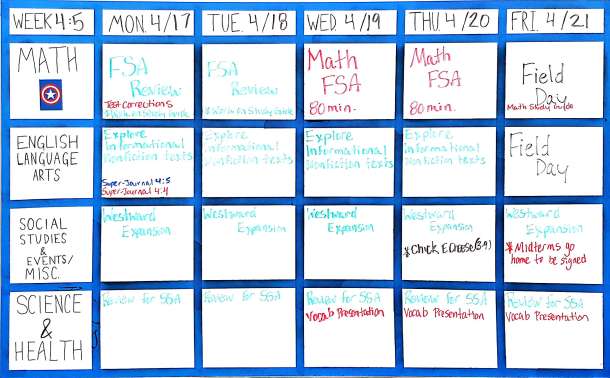 WEEK 4:5
MON. 4/17
TUE. 4/18
WED. 4/19
THU. 4/20
FRI. 4/21
MATH
FSA
Review
Test corrections
FSA
Review
Math
FSA
80 min.
Math
FSA
80 min.
Field
Day
Math Study Guide
ENGLISH
LANGUAGE
ARTS
Explore
Informational
Nonfiction texts
Super-Journal 4:5
Super-Journal 4:4
Explore
Informational
Nonfiction texts
Explore
Informational
Nonfiction texts
Explore
Informational
Nonfiction texts
Field
Day
SOCIAL
STUDIES
&
EVENTS/
MISC.
Westward
Expansion
Westward
Expansion
Westward
Expansion
Westward
Expansion
*Chuck E Cheese (3-9)
Westward
Expansion
*Midterms go
home to be signed
SCIENCE
&
HEALTH
Review for SSA
Review for SSA
Review for SSA
Vocab Presentation
Review for SSA
Vocab Presentation
Review for SSA
Vocab Presentation